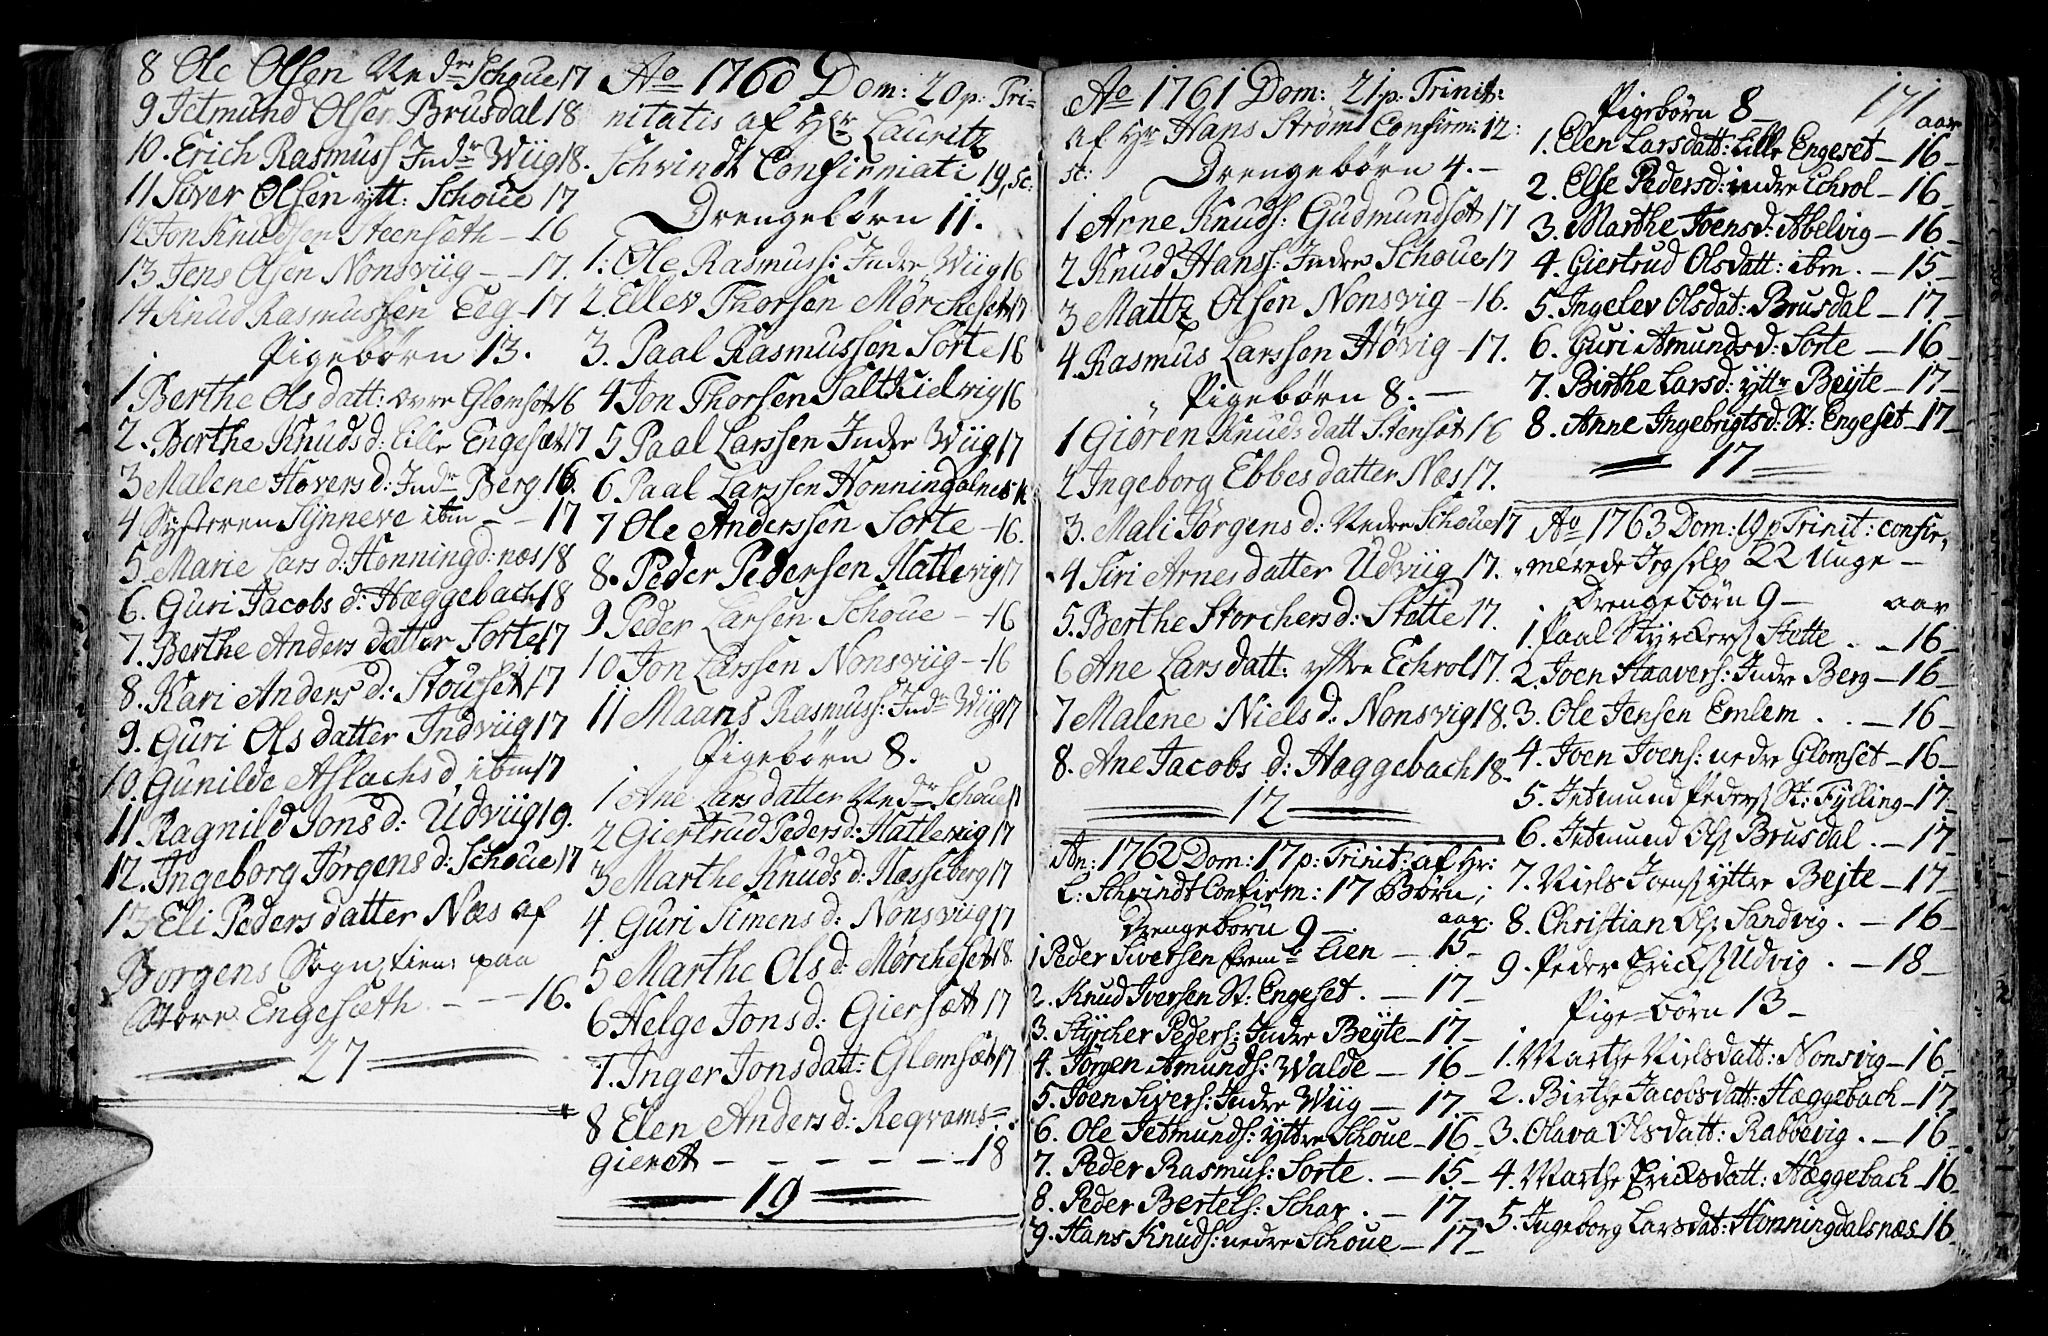 8 Ole Olsen Nedr Schoue 17
9 Jetmund Olsen Brusdal 18
10. Erich Rasmuss Indr Wiig 18.
11 Siver Olsen ytt: Schoue 17
12 Jon Knudsen Steensæth - 16
13. Jens Olsen Nonsviig - - 17.
14 Knud Rasmussen Eeg - 17
Pigebørn 13.
1 Berthe Olsdatt: øvre Glomset 16
2. Berthe Knudsd: Lille Engesæt 17
3 Malene Hoversd: Indr Berg 16.
4 Systeren Synneve ibm - - 17
5. Marie Larsd: Honningd: næs 18
6. Guri Jacobsd: Hæggebach 18
7. Berthe Andersdatter Sorte 17
8. Kari Andersd: Stouset 17
9. Guri Olsdatter Indviig 17
10. Gunilde Aslachsd ibm 17
11 Ragnild Jonsd: Udviig 19.
12. Ingeborg Jørgensd: Schoue 17
13 Eli Pedersdatter Næs af
Borgens Sogn, tien: paa
Store Engesæth. - - - 16.
27
Ao 1760 Dom: 20 p: Tri-
nitatis af Hr Lauritz
Schvindt Confirmati 19, sc:
Drengebørn 11.
1: Ole Rasmuss: Indre Wiig 16
2. Ellev Thorsen Mørcheset 17
3. Paal Rasmussen Sorte 16
4 Jon Thorsen Saltkielvig 16
5 Paal Larssen Indre Wiig 17
6 Paal Larssen Honningdalnes 16
7 Ole Anderssen Sorte - 16.
8. Peder Pedersen Hatlevig 17
9 Peder Larsen Schoue - 16
10 Jon Larssen Nonsviig - 16
11 Maans Rasmuss: Indr Wiig 17
Pigebørn 8.
1 Ane Larsdatter Nedr Schoue 17
2 Giertrud Pedersd: Hatlevig 17
3 Marthe Knudsd: Hesseberg 17
4. Guri Simensd: Nonsviig 17
5 Marthe Olsd: Mørcheset 18.
6 Helge Jonsd: Giersætt 17
7. Inger Jonsdatt: Glomsæt 17
8 Elen Andersd: Reqvams=
gieret - - - - - 18
19
Ao 1761 Dom: 21 p. Trinit:
af Hr Hans Strøm Confirm: 12:
st: Drengebørn 4. -
1 Arne Knuds: Gudmundset 17
2 Knud Hanss: Indre Schoue 17
3 Mattz Olsen Nonsvig - 16.
4. Rasmus Larssen Høvig - 17.
Pigebørn 8. -
1 Giøren Knudsdatt Stensæt 16
2 Ingeborg Ebbesdatter Næs 17.
3. Mali Jørgensd: Nedre Schoue 17
4 Siri Arnesdatter Udviig 17.
5. Berthe Storchersd: Stette 17.
6 Ane Larsdatt: ystre Eckrol 17.
7 Malene Nielsd: Nonsvig 18.
8. Ane Jacobsd: Hæggebach 18.
12
An: 1762 Dom: 17 p: Trinit: af Hr:
L: Schvindt Confirm: 17 Børn;
Drengebørn 9 - aar:
1 Peder Siversen Lien - 15 -
2. Knud Iversen St: Engeset. - 17 -
3. Stycher Peders: Indre Beyte - 17 -
4. Jørgen Amunds: Walde - 16 -
5. Joen Sivers: Indre Wiig - 17 -
6. Ole Jetmunds: ÿttre Schoue - 16 -
7. Peder Rasmus: Sorte. - 15 -
8. Peder Bertels: Schar. - 17 -
9. Hans Knuds: nedre Schoue - 17 -
171
Pigebørn 8 - aar
1. Elen Larsdatt: Lille Engeset - 16 -
2. Else Pedersd: indre Echrol - 16 -
3. Marthe Joensd: Abelvig - 16 -
4. Giertrud Olsdatt: ibm. - 15 -
5. Ingelev Olsdat: Brusdal - 17 -
6. Guri Amundsd: Sorte - 16 -
7. Birthe Larsd: ytte Beyte - 17 -
8. Anne Ingebrigtsd: St: Engeset - 17 -
17
Ao 1763 Dom: 19 p Trinit: confir,
merede Jeg selv 22 Unge -
Drengebørn 9 - aar
1. Paal Styrckers Stette . - 16 -
2. Joen Haavers: Indre Berg - 16 -
3. Ole Jensen Emlem . . - 16 -
4. Joen Joens: nedre Glomset - 16 -
5. Jetmund Peders St: Fylling - 17 -
6. Jetmund Ols Brusdal. - 17 -
7. Niels Joens yttre Bejte - 17 -
8. Christian Ols: Sandvig. - 16 -
9. Peder Ericks Udvig . - 18 -
Pige=børn 13 -
1. Marthe Nielsdatt: Nonsvig - 16 -
2. Birthe Jacobsdatt: Hæggebach - 17
3. Olava Olsdatt: Rabbevig. - 16 -
4. Marthe Ericksdatt: Hæggebach - 16 -
5. Ingeborg Larsdat: Honningdalsnæs 16 -